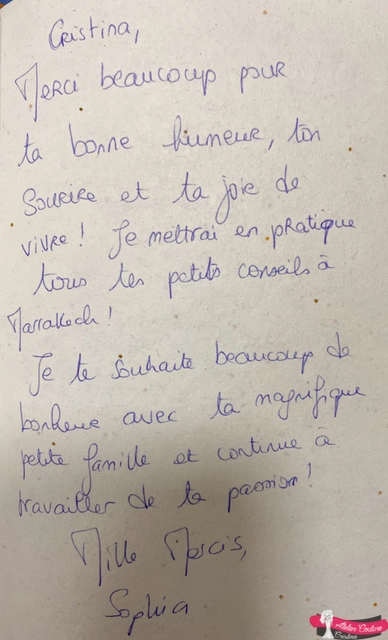 Cristina,
Merci beaucoup pour
ta bonne humeur, ton
sourire et ta joie de
vivre ! Je mettrai en pratique
tous tes petits conseils à
Marrakech !
Je te souhaite beaucoup de
bonheur avec ta magnifique
petite famille et continue à
travailler de ta passion !
Mille Mercis,
Sophia
Atelier Couture